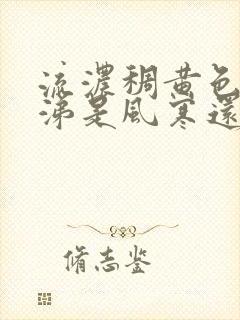 流濃稠黄色
涕是風寒還
脩志鉴